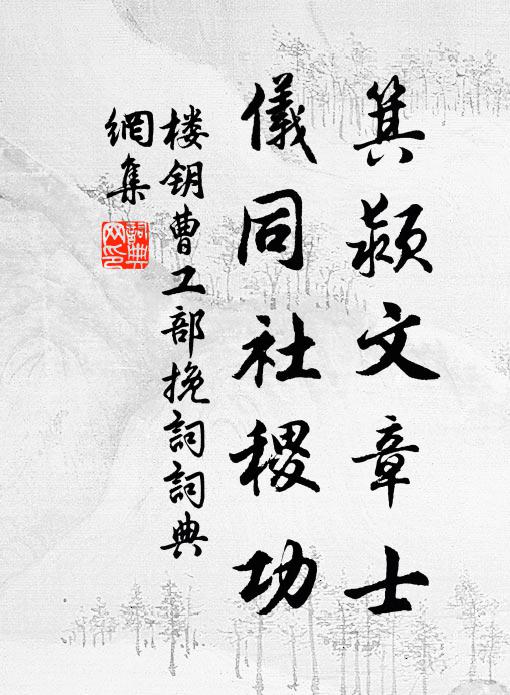 箕颍文章士
儀同社稷功
楼钥曹工部挽詞詞典
網集
詞典網印